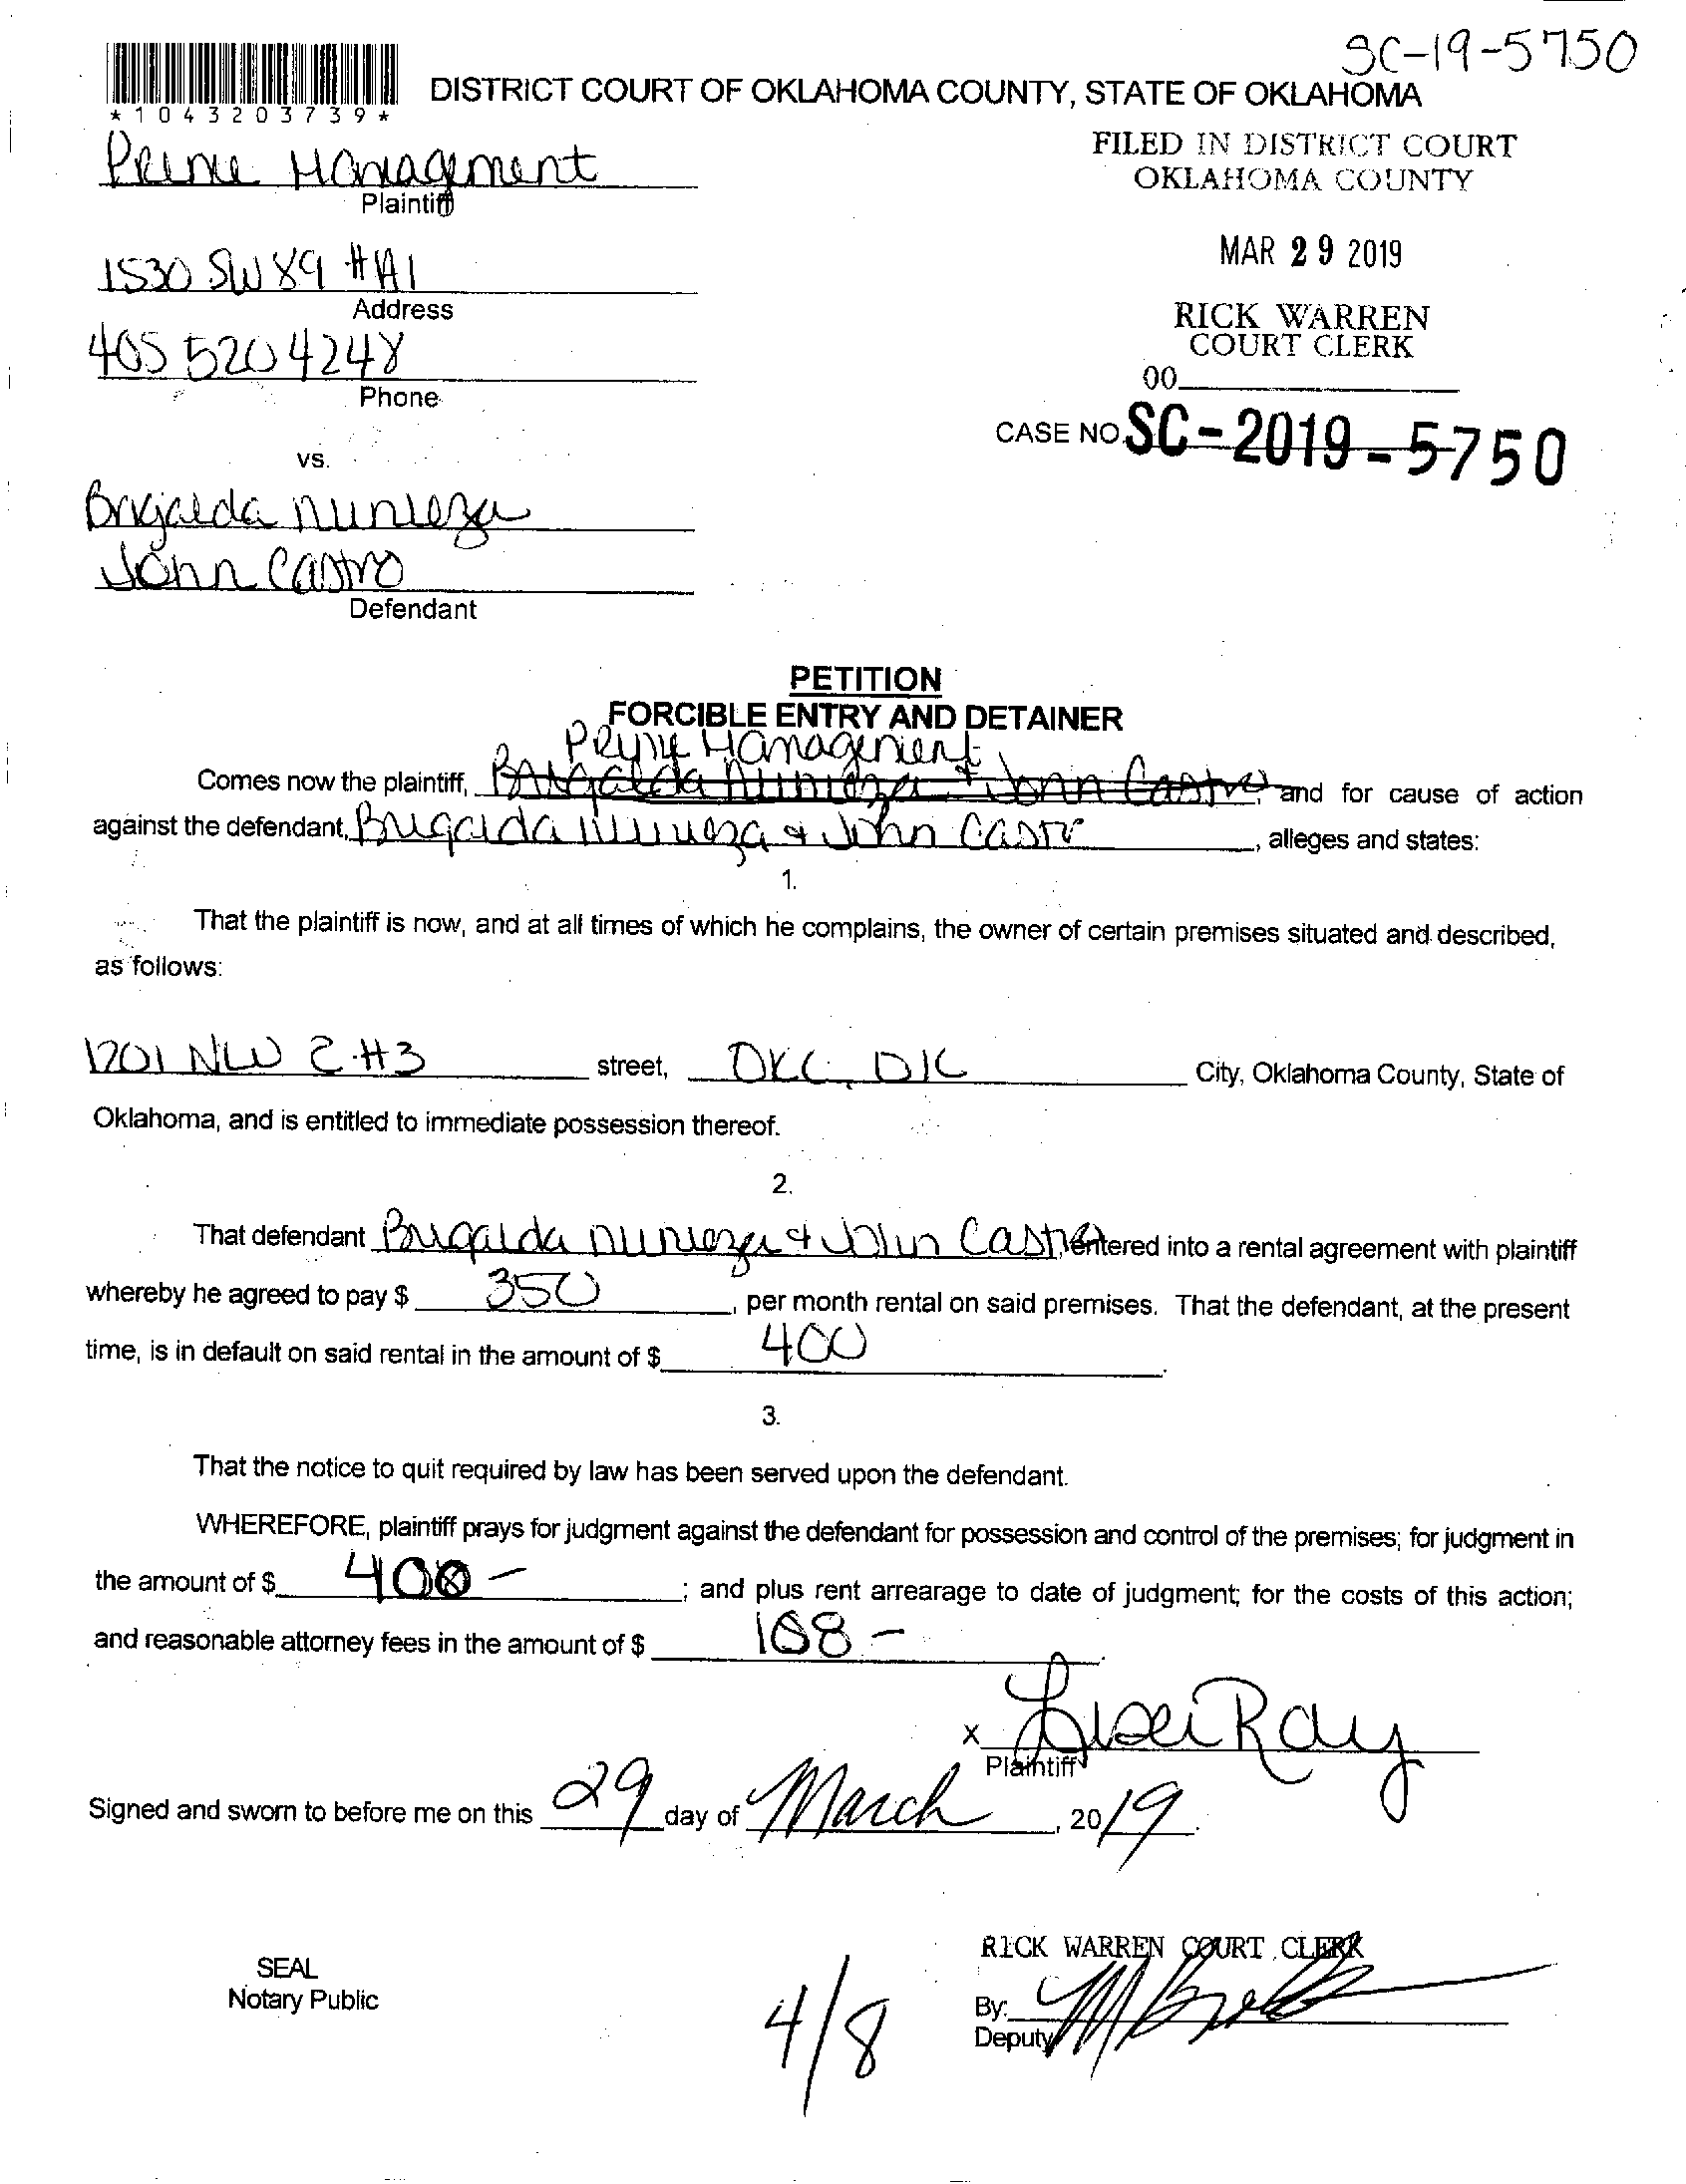 SC-19-5750
*1043203739*
DISTRICT COURT OF OKLAHOMA COUNTY, STATE OF OKLAHOMA
FILED IN DISTRICT COURT
OKLAHOMA COUNTY
Prime Management
Plaintiff
MAR 29 2019
1530 SW 89 #A1
Address
RICK WARREN
COURT CLERK
405 520 4248
Phone
00
CASE NO. SC-2019-5750
vs.
Brigaida Nunieza
John Castro
Defendant
PETITION
FORCIBLE ENTRY AND DETAINER
Prime Management
Comes now the plaintiff, Brigaida Nunieza + John Castro, and for cause of action
against the defendant, Brigaida Nunieza & John Castr, alleges and states:
1.
That the plaintiff is now, and at all times of which he complains, the owner of certain premises situated and described,
as follows:
1201 NW 2 #3 street, OKC, OK City, Oklahoma County, State of
Oklahoma, and is entitled to immediate possession thereof.
2.
That defendant Brigaida Nunieza & John Castro entered into a rental agreement with plaintiff
whereby he agreed to pay $ 350, per month rental on said premises. That the defendant, at the present
time, is in default on said rental in the amount of $ 400.
3.
That the notice to quit required by law has been served upon the defendant.
WHEREFORE, plaintiff prays for judgment against the defendant for possession and control of the premises; for judgment in
the amount of $ 400 -; and plus rent arrearage to date of judgment; for the costs of this action;
and reasonable attorney fees in the amount of $ 108 -.
x Ray
Plaintiff
Signed and sworn to before me on this 29 day of March, 2019.
RICK WARREN COURT CLERK
SEAL
Notary Public
4/8
By:
Deputy